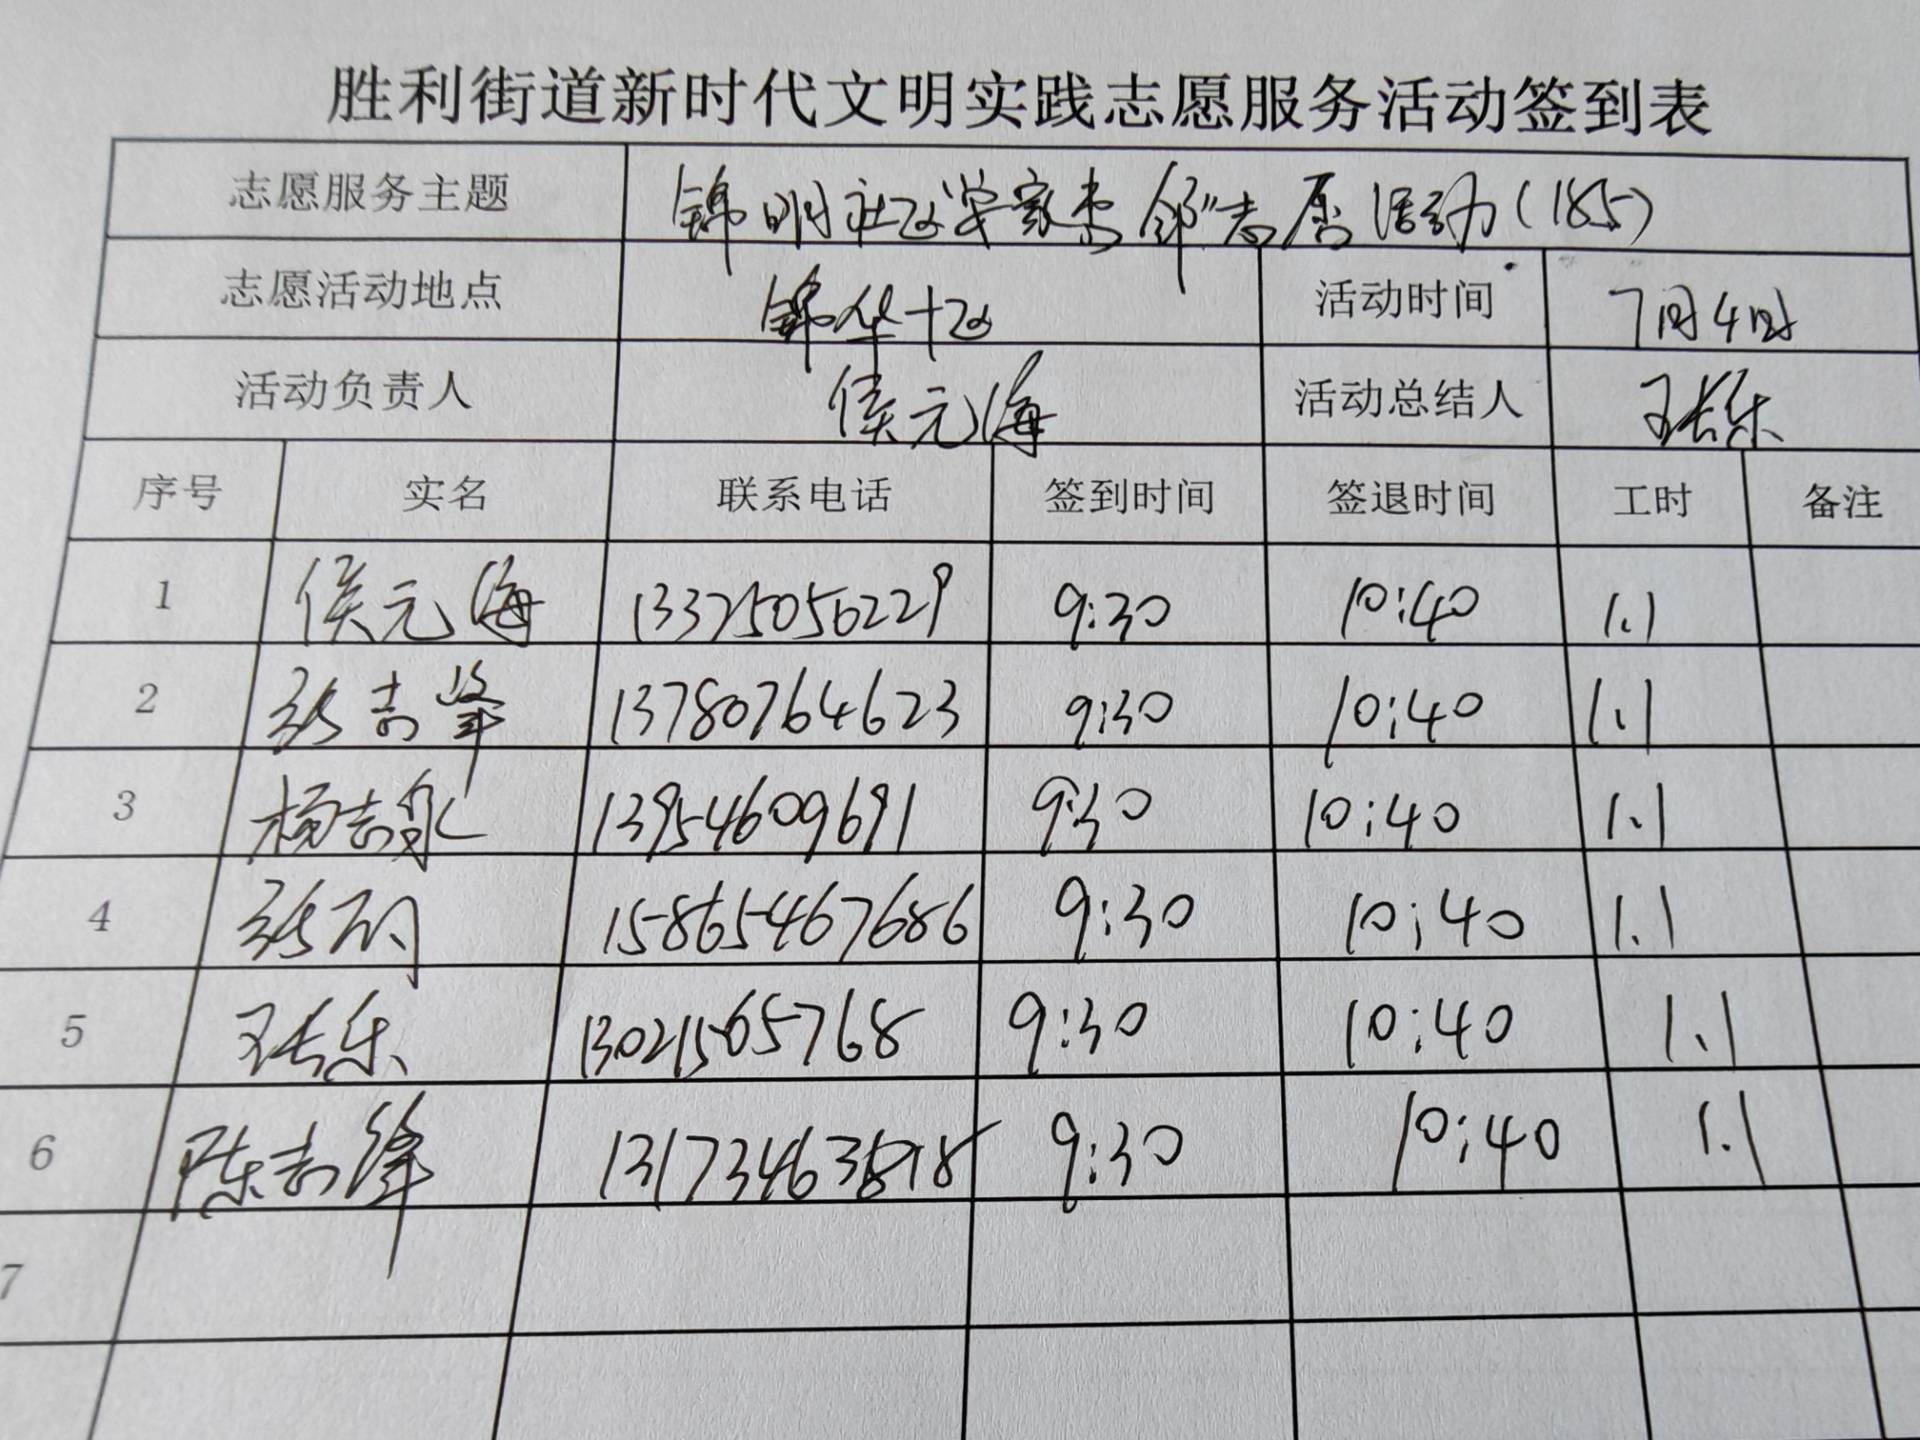 胜利街道新时代文明实践志愿服务活动签到表
志愿服务主题 锦明社区 志愿活动(185)
志愿活动地点 锦华十区 活动时间 7月4日
活动负责人 侯元海 活动总结人 王长乐
序号 实名 联系电话 签到时间 签退时间 工时 备注
1 侯元海 13325056229 9:30 10:40 1.1
2 张志峰 13780764623 9:30 10:40 1.1
3 杨志泉 13954609691 9:30 10:40 1.1
4 张 15865467686 9:30 10:40 1.1
5 王长乐 13021565768 9:30 10:40 1.1
6 陈志锋 9:30 10:40 1.1
7